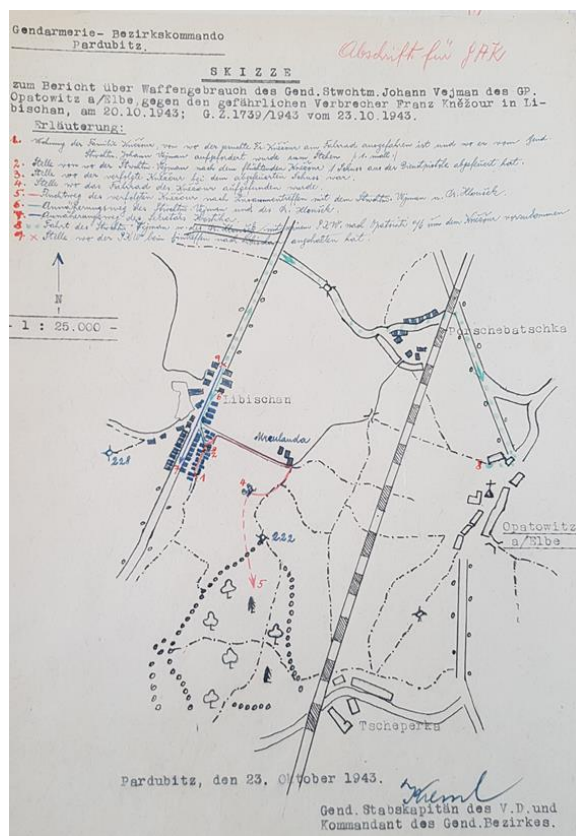 Gendarmerie- Bezirkskommando
Pardubitz.
Abschrift für JAK
SKIZZE
zum Bericht über Waffengebrauch des Gend.Stwchtm. Johann Vejman des GP.
Opatowitz a/Elbe, gegen den gefährlichen Verbrecher Franz Kněžour in Li-
bischan, am 20.10.1943; G.Z.1739/1943 vom 23.10.1943.
Erläuterung:
1. Wohnung der Familie Kněžour, von wo der Fr. Kněžour am Fahrrad ausgefahren ist und wo er vom Gend.
Stwchtm. Johann Vejman aufgefordert wurde zum Stehen
2. Stelle von wo der Stwchtm. Vejman nach dem flüchtenden Kněžour 1 Schuss aus der Dienstpistole abgefeuert hat.
3. Stelle wo der verfolgte Kněžour bei dem abgefeuerten Schuss war.
4. Stelle wo das Fahrrad des Kněžour aufgefunden wurde.
5. Fluchtweg des verfolgten Kněžour nach Zusammentreffen mit dem Stwchtm. Vejman u.
6. Annäherungsweg des Stwchtm. Vejman und des
7. Annäherungsweg des
8. Fahrt des Stwchtm. Vejman mit einem P.K.W. nach Opatowitz a/E um dem Kněžour vorzukommen
9. × Stelle wo der P.K.W. beim nach angehalten hat.
N
- 1 : 25.000 -
Porschebatschka
Libischan
221
1
2
3
4
5
8
9
222
Opatowitz
a/Elbe
Tscheperka
Pardubitz, den 23. Oktober 1943.
Gend. Stabskapitän des V.D.und
Kommandant des Gend.Bezirkes.